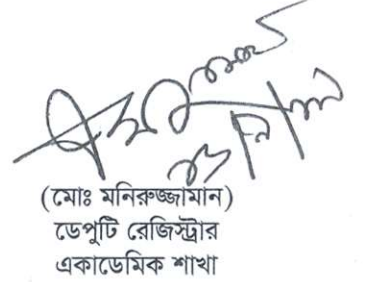 (মোঃ মনিরুজ্জামান)
ডেপুটি রেজিস্ট্রার
একাডেমিক শাখা